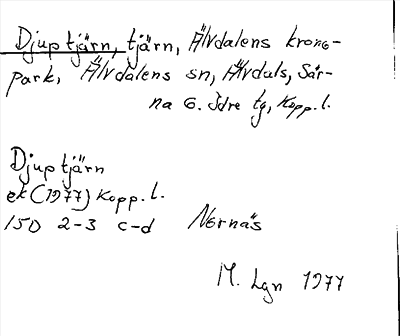 Djuptjärn, tjärn, Älvdalens krono-
park, Älvdalens sn, Älvdals, Sär-
na o. Idre tg, Kopp. l.
Djuptjärn
ek (1977) Kopp. l.
15D 2-3 c-d Nornäs
M. Lgn 1977